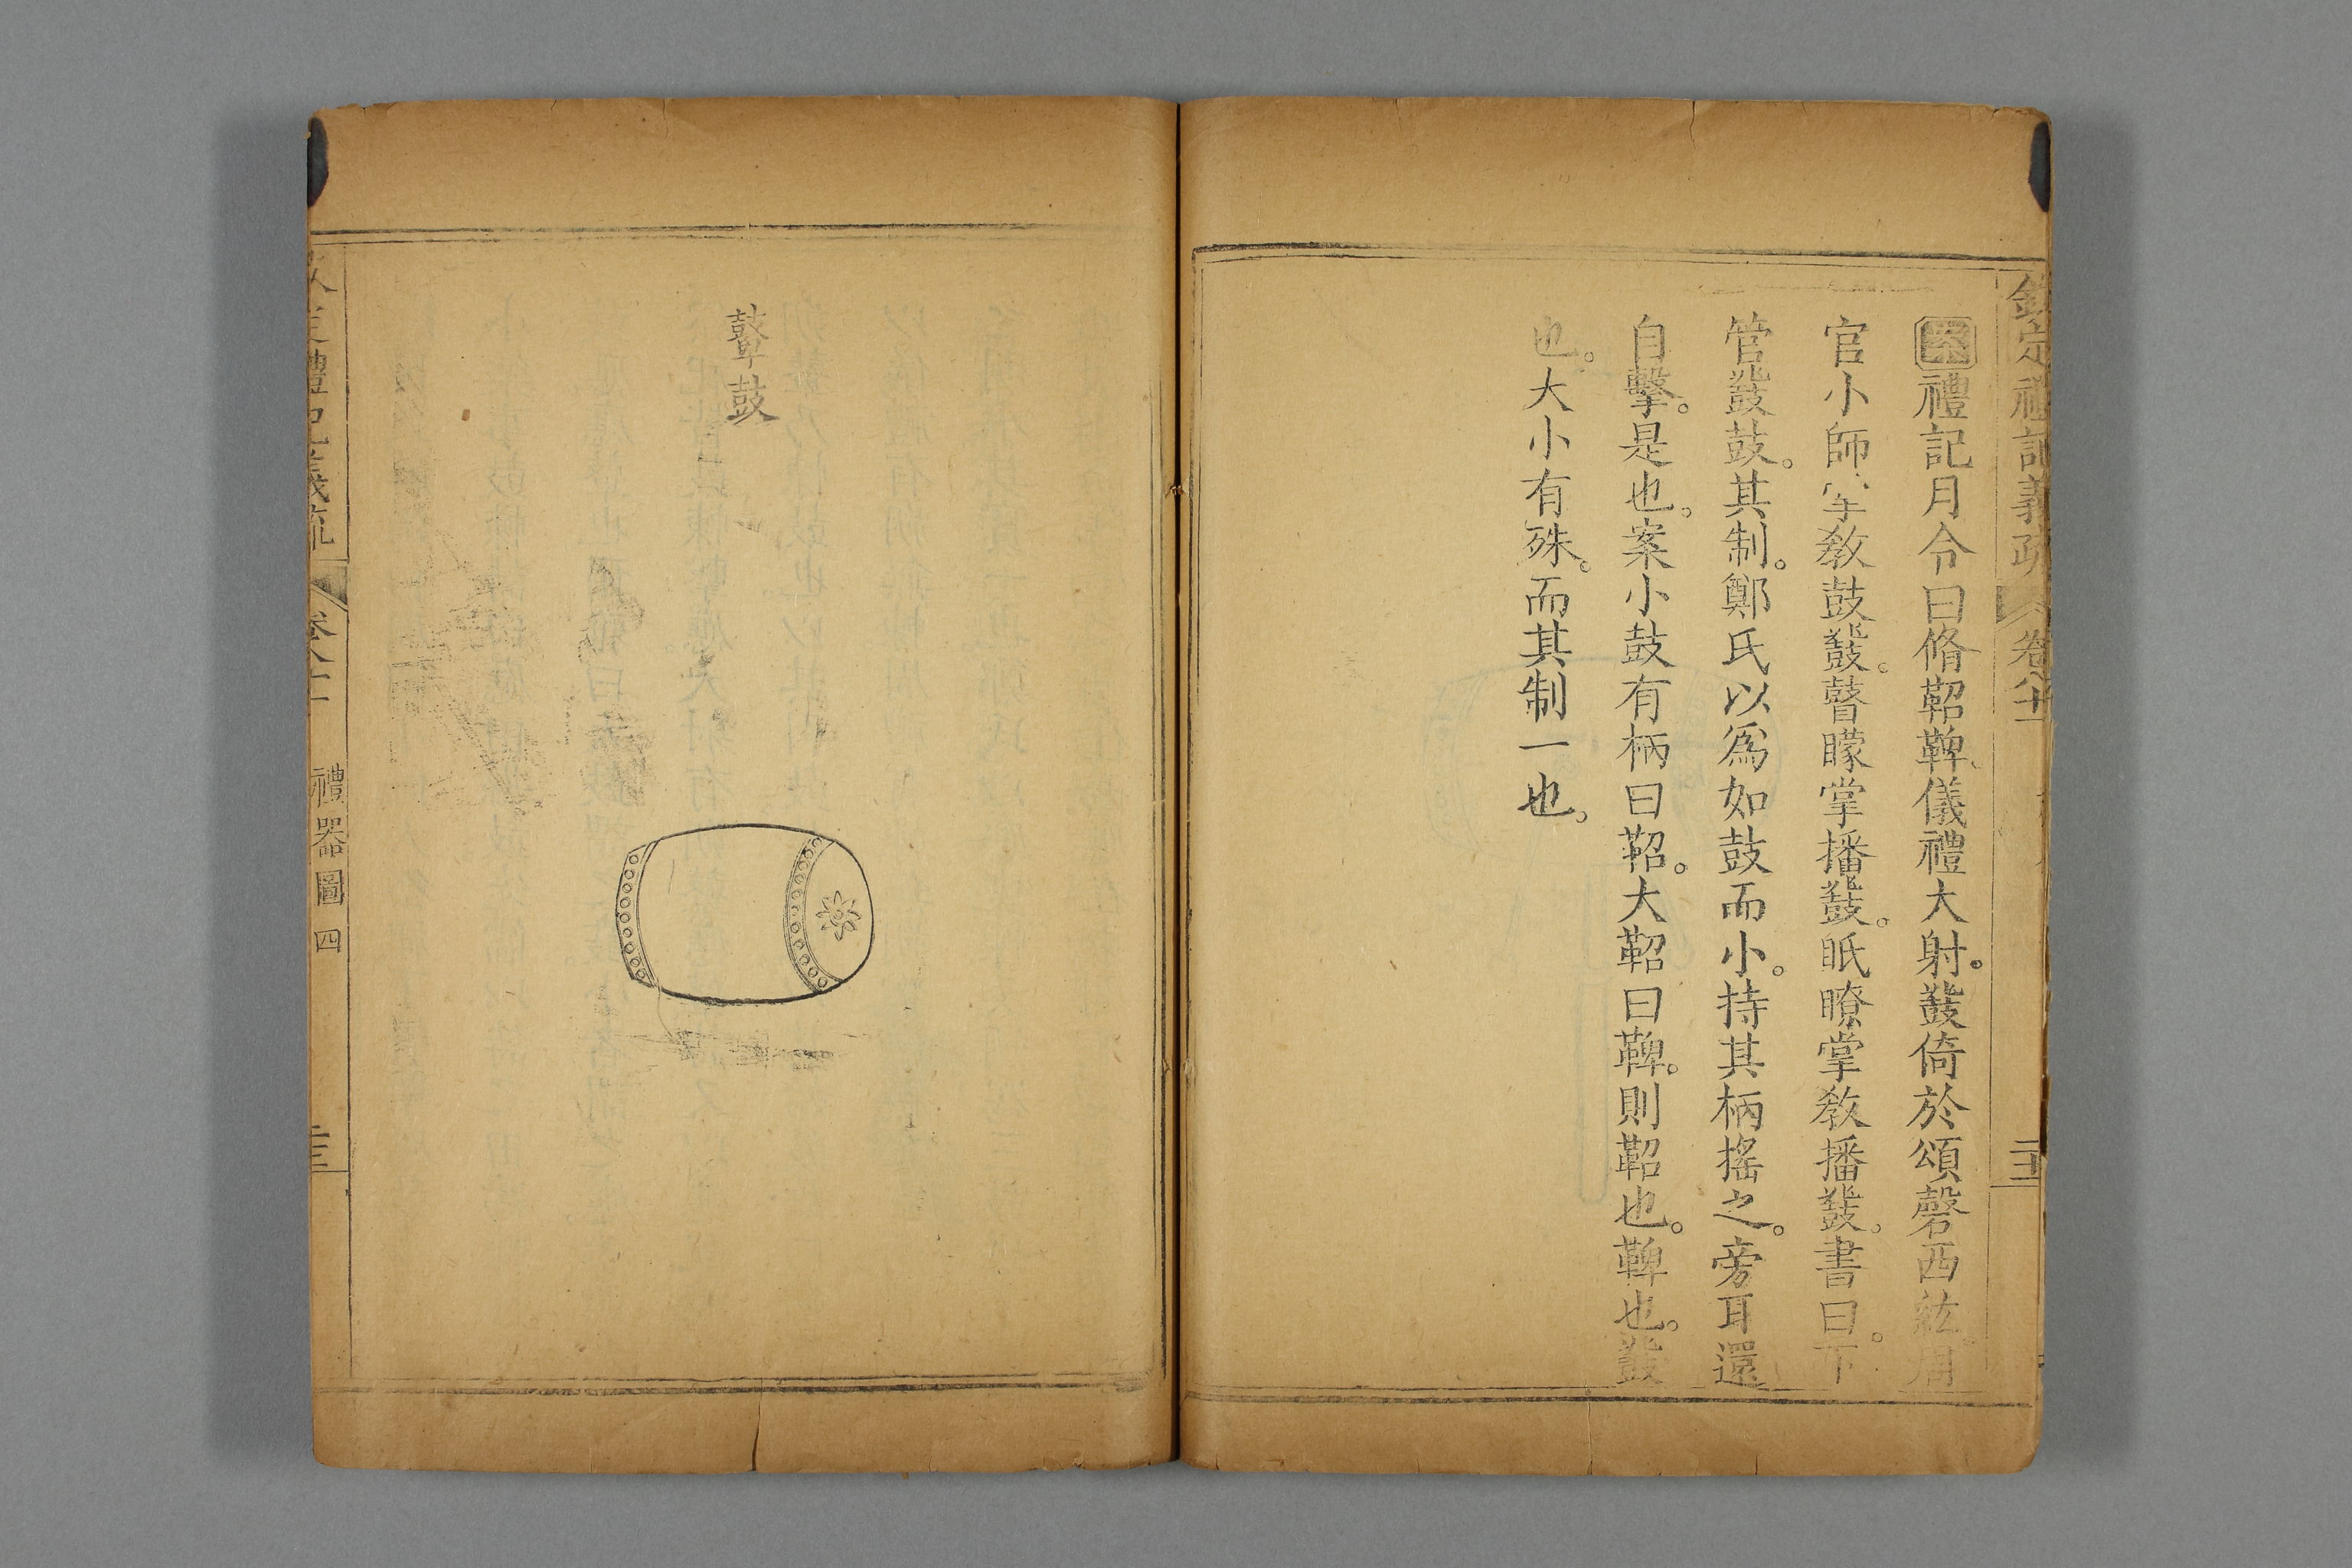 欽定禮記義疏
卷八十二
案禮記月令曰脩鞀鞞儀禮大射鼗倚於頌磬西紘周
官小師掌敎鼓鼗瞽矇掌播鼗眡瞭掌敎播鼗書曰下
管鼗鼓其制鄭氏以爲如鼓而小持其柄搖之旁耳還
自擊是也案小鼓有柄曰鞀大鞀曰鞞則鞀也鞞也鼗
也大小有殊而其制一也
鼛鼓
禮記義疏
禮器圖四